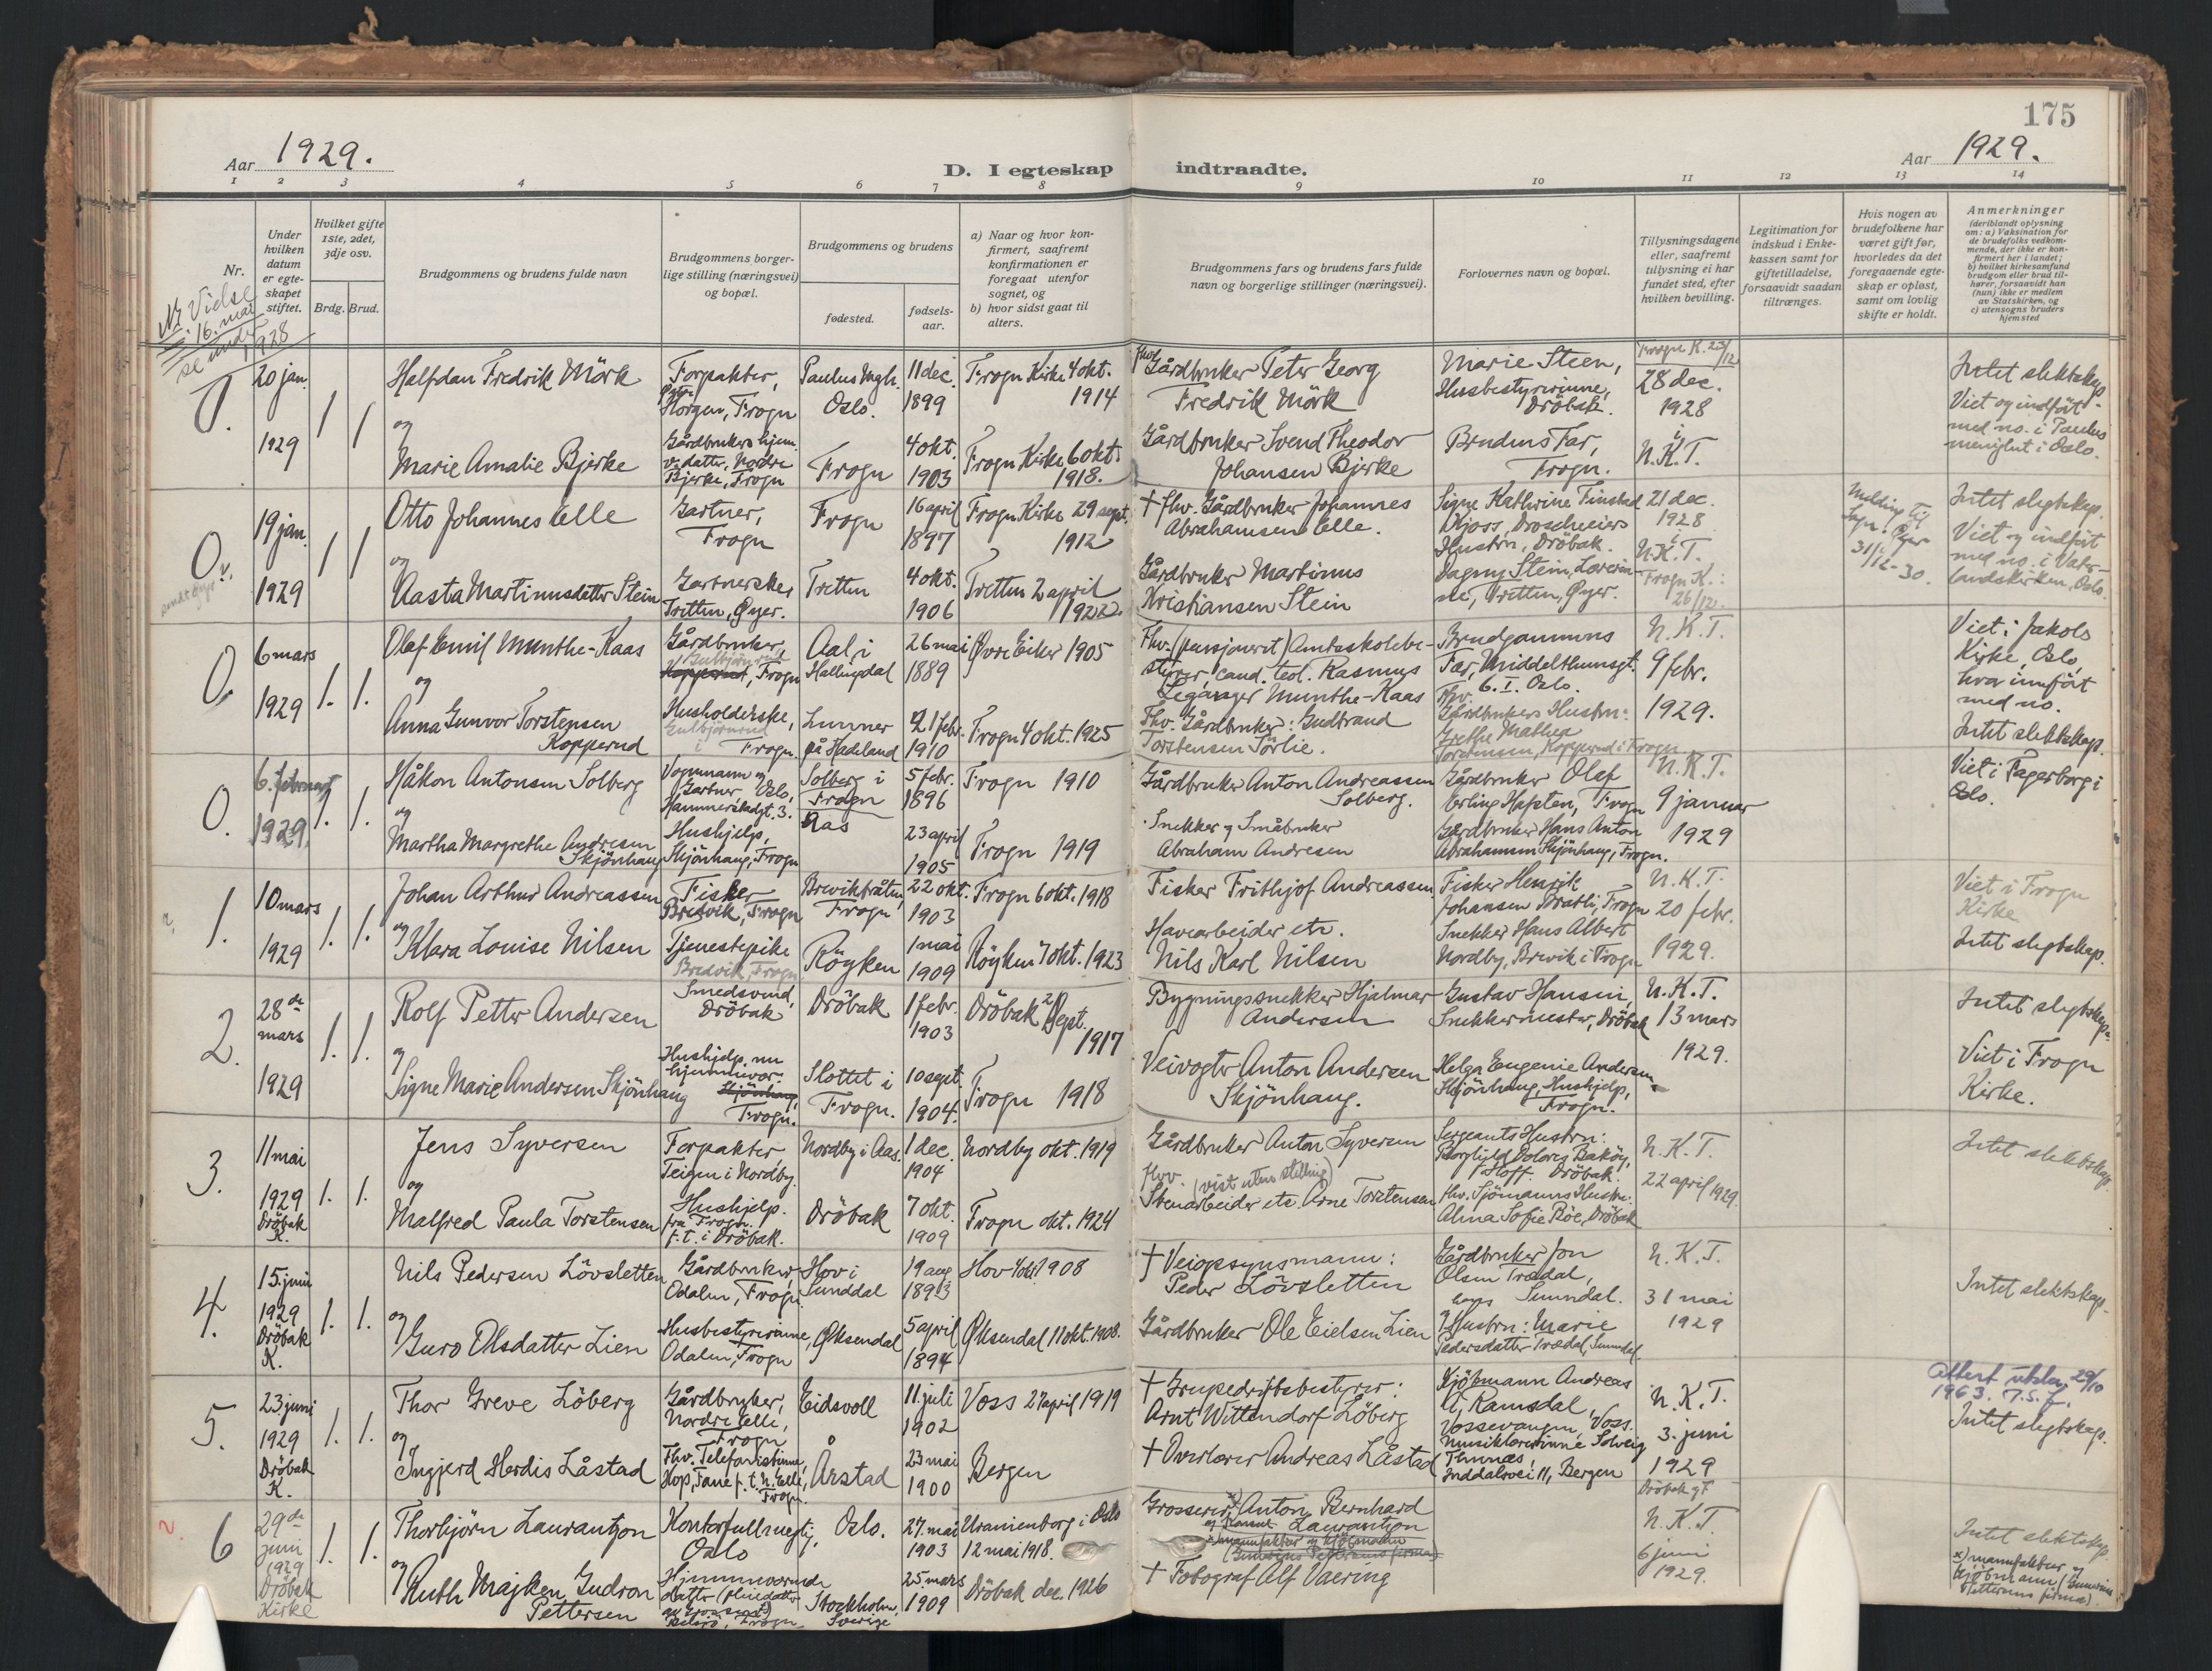 175
Aar 1929.
D. I egteskap indtraadte.
Aar 1929.
1 2 3 4 5 6 7 8 9 10 11 12 13 14
Nr.
Under hvilken datum er egteskapet stiftet.
Hvilket gifte 1ste, 2det, 3dje osv.
Brdg. Brud.
Brudgommens og brudens fulde navn
Brudgommens borgerlige stilling (næringsvei) og bopæl.
Brudgommens og brudens
fødested.
fødselsaar.
a) Naar og hvor konfirmert, saafremt konfirmationen er foregaat utenfor sognet, og
b) hvor sidst gaat til alters.
Brudgommens fars og brudens fars fulde navn og borgerlige stillinger (næringsvei).
Forlovernes navn og bopæl.
Tillysningsdagene eller, saafremt tillysning ei har fundet sted, efter hvilken bevilling.
Legitimation for indskud i Enkekassen samt for giftetilladelse, forsaavidt saadan tiltrænges.
Hvis nogen av brudefolkene har været gift før, hvorledes da det foregaaende egteskap er opløst, samt om lovlig skifte er holdt.
Anmerkninger
(deriblandt oplysning om: a) Vaksination for de brudefolks vedkommende, der ikke er konfirmert her i landet; b) hvilket kirkesamfund brudgom eller brud tilhører, forsaavidt han (hun) ikke er medlem av Statskirken, og c) utensogns bruders hjemsted
Vielse
16. mai
se under 1928
0. 20 jan. 1929
1 1
Halfdan Fredrik Mörk
og
Marie Amalie Bjerke
Forpakter,
Horgen, Frogn
Gårdbrukers hjem.
v. datter, Nordre
Bjerke, Frogn
Paulus Mgh.
Oslo.
Frogn
11 dec. 1899
4 okt. 1903
Frogn Kirke 4 okt. 1914
Frogn Kirke 6 okt. 1918.
Fhv. Gårdbruker Peter Georg
Fredrik Mörk
Gårdbruker Svend Theodor
Johansen Bjerke
Marie Steen,
Husbestyrerinne,
Dröbak.
Brudens Far,
Frogn.
Frogn K. 23/12
28 dec.
1928
i
N.K.T.
Intet slektskap.
Viet og indfört
med no. i Paulus
menighet i Oslo.
0. 19 jan. 1929
1 1
Otto Johannes Elle
og
Aasta Martinusdatter Stein
Gartner,
Frogn
Gartnerske,
Tretten, Øyer.
Frogn
Tretten
16 april 1897
4 okt. 1906
Frogn Kirke 29 sept. 1912
Tretten 2 april 1922.
† Fhv. Gårdbruker Johannes
Abrahamsen Elle.
Gårdbruker Martinus
Kristiansen Stein
Signe Kathrine Finstad
Kjoss, Droscheeiers
Hustru, Dröbak.
Dagny Stein, Lærerinne,
Tretten, Øyer.
21 dec.
1928
i
N.K.T.
Frogn K.:
26/12.
Melding til
Sogn. Øyer
31/12-30.
Intet slegtskap.
Viet og indfört
med no. i Vaterlandskirken, Oslo.
0. 6 mars 1929
1. 1.
Olaf Emil Munthe-Kaas
og
Anna Gunvor Torstensen
Kopperud
Gårdbruker,
Gulbjörnrud
Kopperud, Frogn
Husholderske,
Gulbjörnrud
i Frogn.
Aal i
Hallingdal
Lunner
på Hadeland
26 mai 1889
21 febr. 1910
Øvre Eiker 1905
Frogn 4 okt. 1925
Fhv. (pensjonert) Amtsskolebestyrer,
cand. teol. Rasmus
Leganger Munthe-Kaas
Fhv. Gårdbruker: Gudbrand
Torstensen Sörlie.
Brudgommens
Far, Middelthunsgt.
6. I. Oslo.
Fhv.
Gårdbrukers Hustru:
Grethe Mathea
Torstensen, Kopperud i Frogn
N.K.T.
9 febr.
1929.
Viet i Jakobs
Kirke, Oslo,
hvor innfört
med no.
Intet slektskap.
0. 6. februar 1929
1. 1.
Håkon Antonsen Solberg
og
Martha Margrethe Andresen
Skjönhaug
Vognmann og
Gartner Oslo,
Hammerstadgt. 3.
Hushjelp,
Skjönhaug, Frogn
Solberg i
Frogn
Aas
5 febr. 1896
23 april 1905
Frogn 1910
Frogn 1919
Gårdbruker Anton Andreassen
Solberg.
Snekker og Småbruker
Abraham Andresen
Gårdbruker Olaf
Erling Hafsten, Frogn
Gårdbruker Hans Anton
Abrahamsen Skjönhaug, Frogn.
N.K.T.
9 januar
1929
Viet i Fagerborg i
Oslo.
1. 10 mars 1929
1. 1.
Johan Arthur Andreassen
og
Klara Louise Nilsen
Fisker
Bredvik, Frogn
Tjenestepike
Bredvik, Frogn
Brevikbråten,
Frogn
Röyken
22 okt. 1903
1 mai 1909
Frogn 6 okt. 1918
Röyken 7 okt. 1923
Fisker Frithjof Andreassen
Havearbeider etc.
Nils Karl Nilsen
Fisker Henrik
Johansen Bratli, Frogn
Snekker Hans Albert
Nordby, Brevik i Frogn
N.K.T.
20 febr.
1929.
Viet i Frogn
Kirke
Intet slegtskap.
2. 28de mars 1929
1. 1.
Rolf Petter Andersen
og
Signe Marie Andersen Skjönhaug
Smedsvend,
Dröbak
Hushjelp, nu
hjemmevær.
Skjönhaug,
Frogn.
Dröbak
Slottet i
Frogn.
1 febr. 1903
10 sept. 1904.
Dröbak Sept. 1917
Frogn 1918
Bygningssnekker Hjalmar
Andersen
Veivogter Anton Andersen
Skjönhaug.
Gustav Hansen,
Snekkermester, Dröbak
Helga Eugenie Andersen
Skjönhaug, Hushjelp,
Frogn.
N.K.T.
13 mars
1929.
Intet slegtskap.
Viet i Frogn
Kirke.
3. 11 mai 1929
Dröbak K.
1. 1.
Jens Syversen
og
Malfred Paula Torstensen
Forpakter,
Teigen i Nordby.
Hushjelp.
fra Frogn.
f.t. i Dröbak.
Nordby i Aas.
Dröbak
1 dec. 1904
7 okt. 1909
Nordby okt. 1919
Frogn okt. 1924
Gårdbruker Anton Syversen
Fhv. (vist uten stilling)
Stenarbeider etc. Arne Torstensen
Sergeants Hustru:
Borghild Dolores Baköy,
Hoff. Dröbak.
Fhv. Sjömanns Hustru:
Alma Sofie Röe, Dröbak
N.K.T.
22 april 1929.
Intet slektskap.
4. 15 juni 1929
Dröbak K.
1. 1.
Nils Pedersen Lövsletten
og
Guro Olsdatter Lien
Gårdbruker,
Odalen, Frogn.
Husbestyrerinne,
Odalen, Frogn
Hov i
Sunddal
Øksendal
19 aug 1893
5 april 1894
Hov 4 okt 1908
Øksendal 11 okt. 1908.
† Veiopsynsmann:
Peder Lövsletten
Gårdbruker Ole Eielsen Lien
Gårdbruker Jon
Olsen Trædal,
Sunndal.
Hustru: Marie
Pedersdatter Trædal, Sunndal.
N.K.T.
31 mai
1929
Intet slektskap.
5. 23 juni 1929
Dröbak K.
1. 1.
Thor Greve Löberg
og
Ingjerd Herdis Låstad
Gårdbruker,
Nordre Elle,
Frogn
Fhv. Telefonistinne,
Hop, Fane f.t. N. Elle,
Frogn.
Eidsvoll
Årstad
11. juli 1902
23 mai 1900
Voss 27 april 1919
Bergen
† Grupedriftsbestyrer:
Arnt Wittendorf Löberg
† Overlærer Andreas Låstad
Kjöpmann Andreas
A. Ramsdal,
Vossevangen, Voss.
Musiklærerinne Solveig
Thunæs,
Inddalsvei 11, Bergen
N.K.T.
3. juni
1929
Attest utsl. 29/10
1963. T.S.F.
Intet slegtskap.
6 29de juni 1929
Dröbak Kirke
1. 1.
Thorbjörn Laurantzon
og
Ruth Majken Gudron
Pettersen
Kontorfullmegtig,
Oslo
Hjemmeværende
datter (pleiedatter
Oslo.
Stockholm,
Sverige
27. mai 1903
25. mars 1909
Uranienborg i Oslo
12 mai 1918.
Dröbak dec. 1926
Grosserer Anton Bernhard
Laurantzon
† Fotograf Alf Vaering
Dröbak og F
N.K.T.
6 juni
1929.
Intet slektskap.
x) manufaktur og
kjöpmann